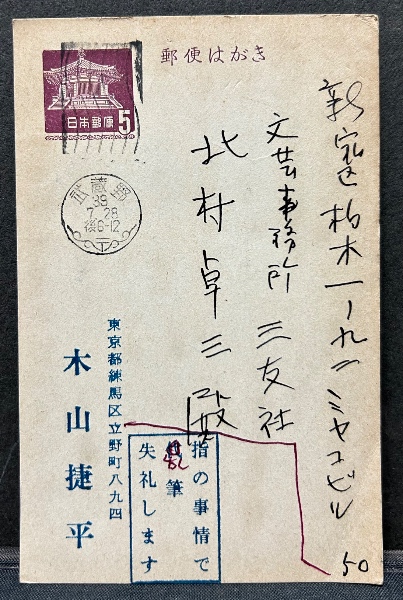 郵便はがき
日本郵便
5
武蔵野
39
7.28
後6-12
新宿区柏木一ノ九一ミヤコビル
50
文芸事務所 三友社
北村卓三殿
東京都練馬区立野町八九四
木山捷平
指の事情で
筆
失礼します